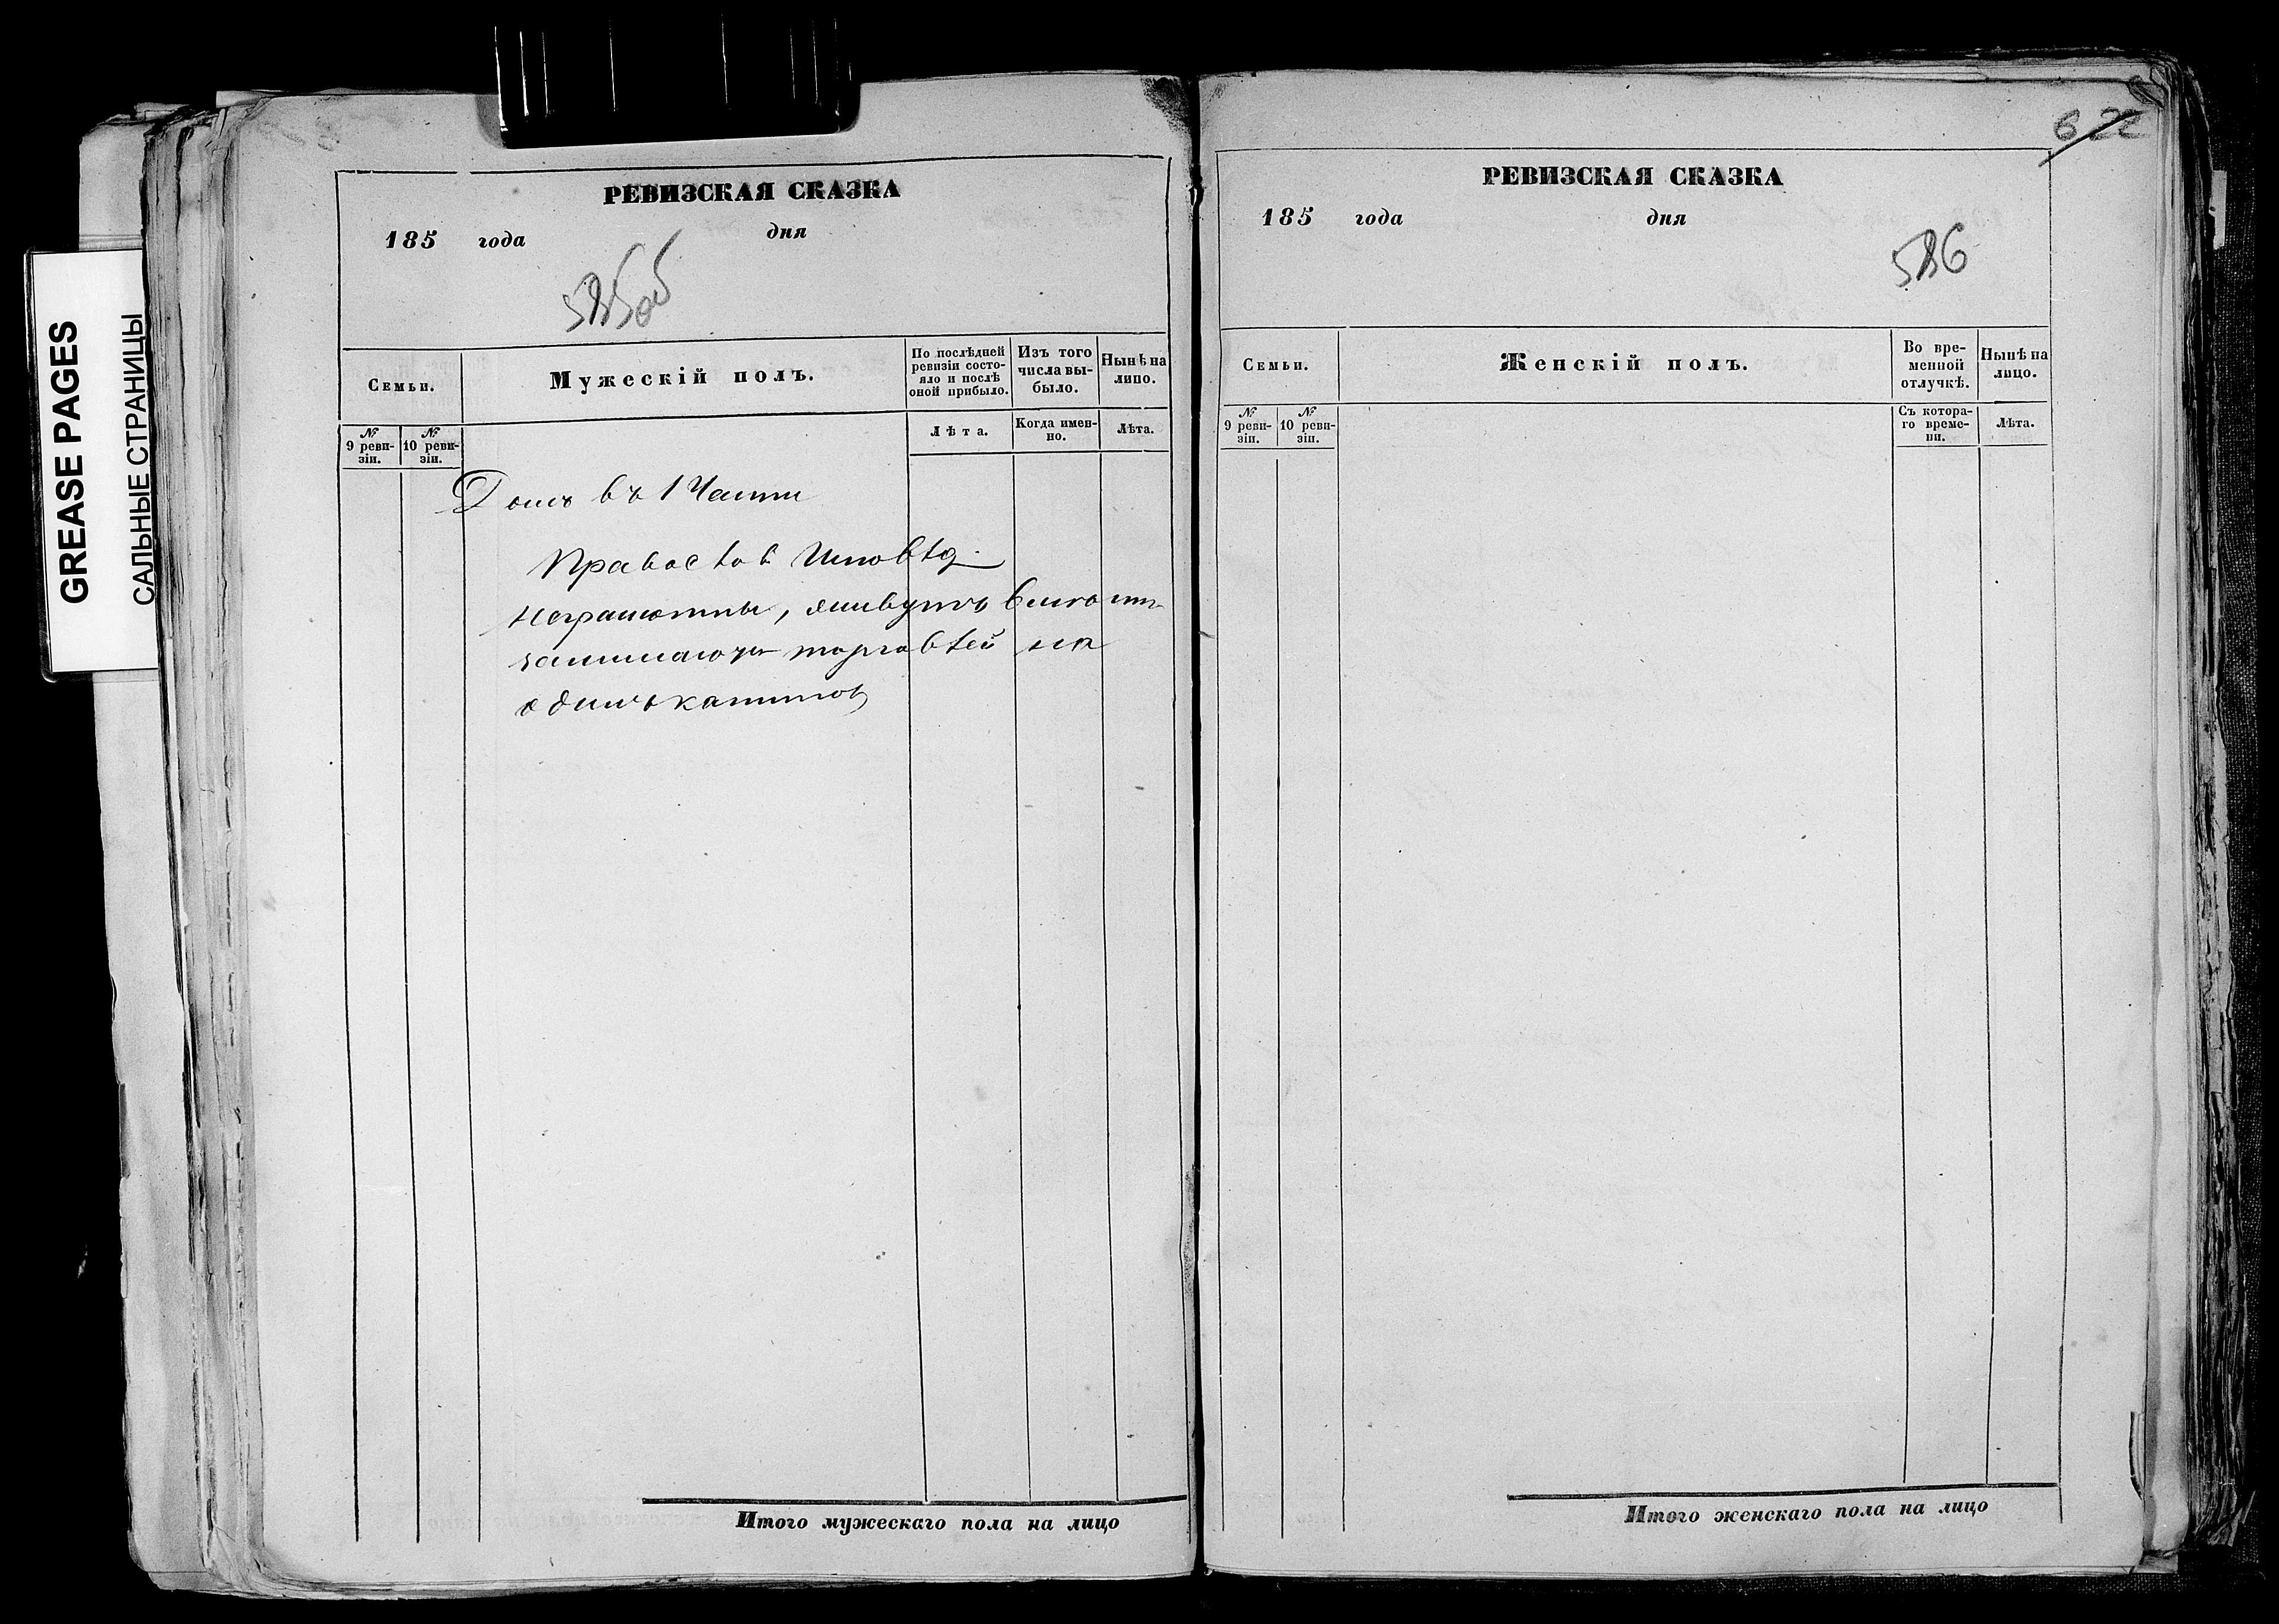 GREASE PAGES
САЛЬНЫЕ СТРАНИЦЫ
РЕВИЗСКАЯ СКАЗКА
185 года дня
585об
Семьи.
Мужескій полъ.
По послѣдней ревизіи состояло и послѣ оной прибыло.
Изъ того числа выбыло.
Нынѣ на лицо.
№ 9 ревизіи.
№ 10 ревизіи.
Лѣта.
Когда именно.
Лѣта.
Домъ въ 1 Части
Правослов Исповѣд.
неграмотны, живутъ
занимаются торговлей на
одинъ капитал
Итого мужескаго пола на лицо
6 22
РЕВИЗСКАЯ СКАЗКА
185 года дня
586
Семьи.
Женскій полъ.
Во временной отлучкѣ.
Нынѣ на лицо.
№ 9 ревизіи.
№ 10 ревизіи.
Съ котораго времени.
Лѣта.
Итого женскаго пола на лицо